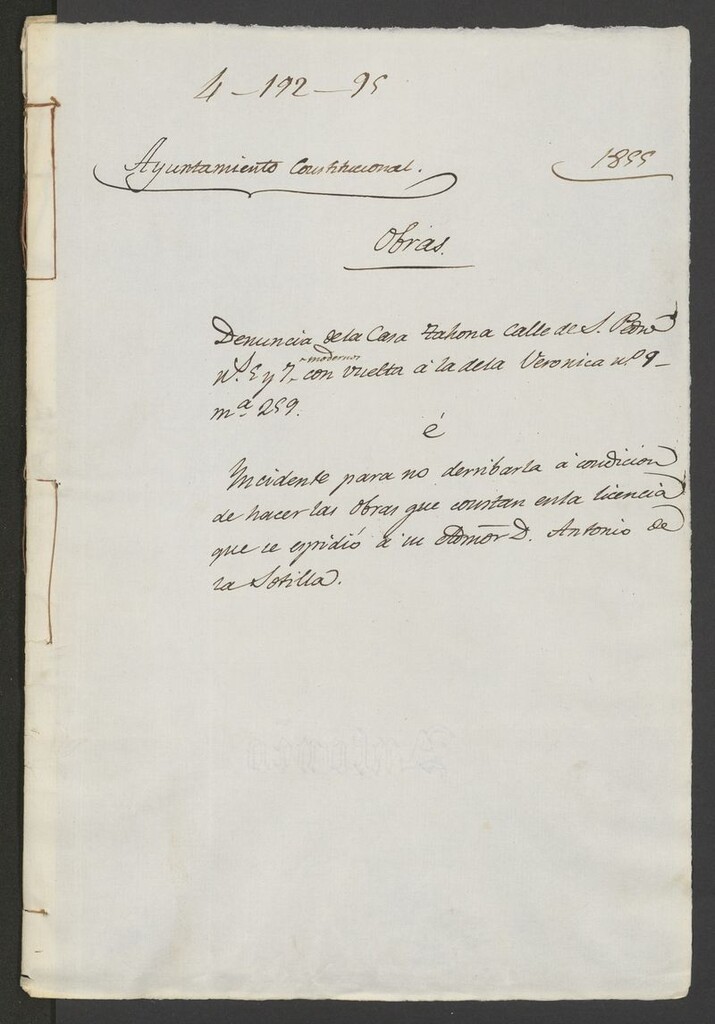 4-192-95
Ayuntamiento Constitucional.
1855
Obras.
Denuncia dela Casa tahona Calle de S. Pedro
nos. 5 y 7, modernos con vuelta á la dela Veronica no. 9
mª 259.
é
Incidente para no derribarla á condicion
de hacer las obras que constan en la licencia
que se espidió á su Admor D. Antonio de
la Sotilla.